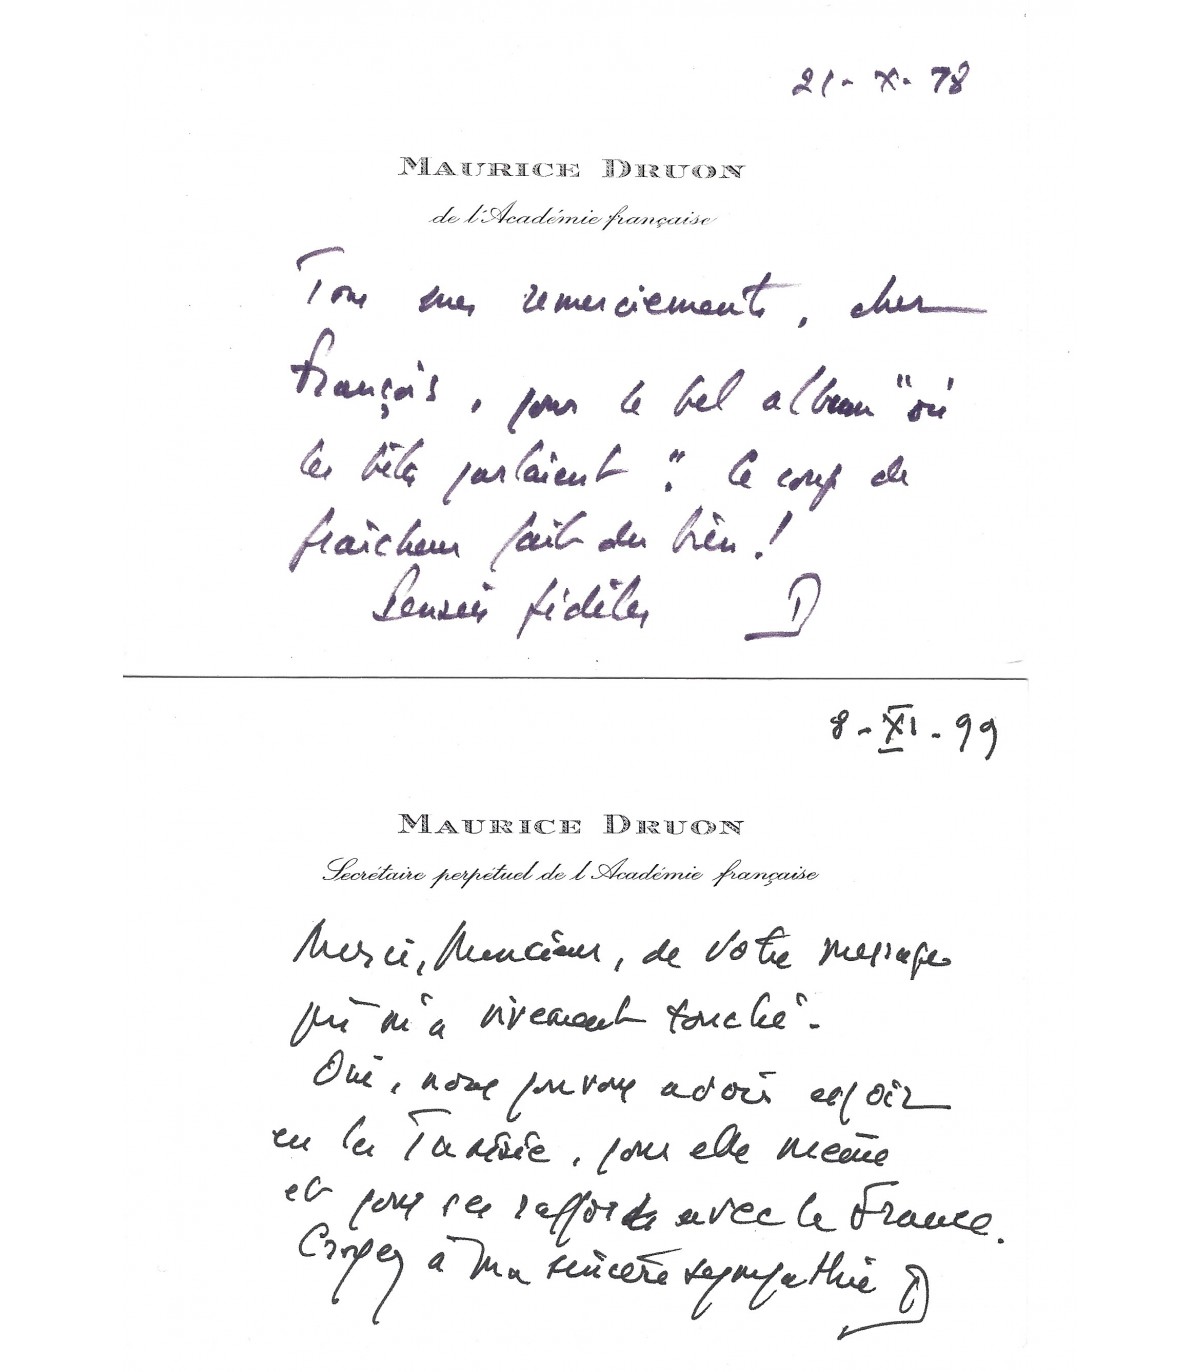 21-X-78
MAURICE DRUON
de l'Académie française
Tous mes remerciements, cher
François, pour le bel album "où
les bêtes parlaient". Le coup de
fraîcheur fait du bien!
Pensées fidèles D
8-XI-99
MAURICE DRUON
Secrétaire perpétuel de l'Académie française
Merci, Monsieur, de votre message
qui m'a vivement touché.
Oui, nous pouvons avoir espoir
en la Tunisie, pour elle même
et pour ses rapports avec la France.
Croyez à ma sincère sympathie D